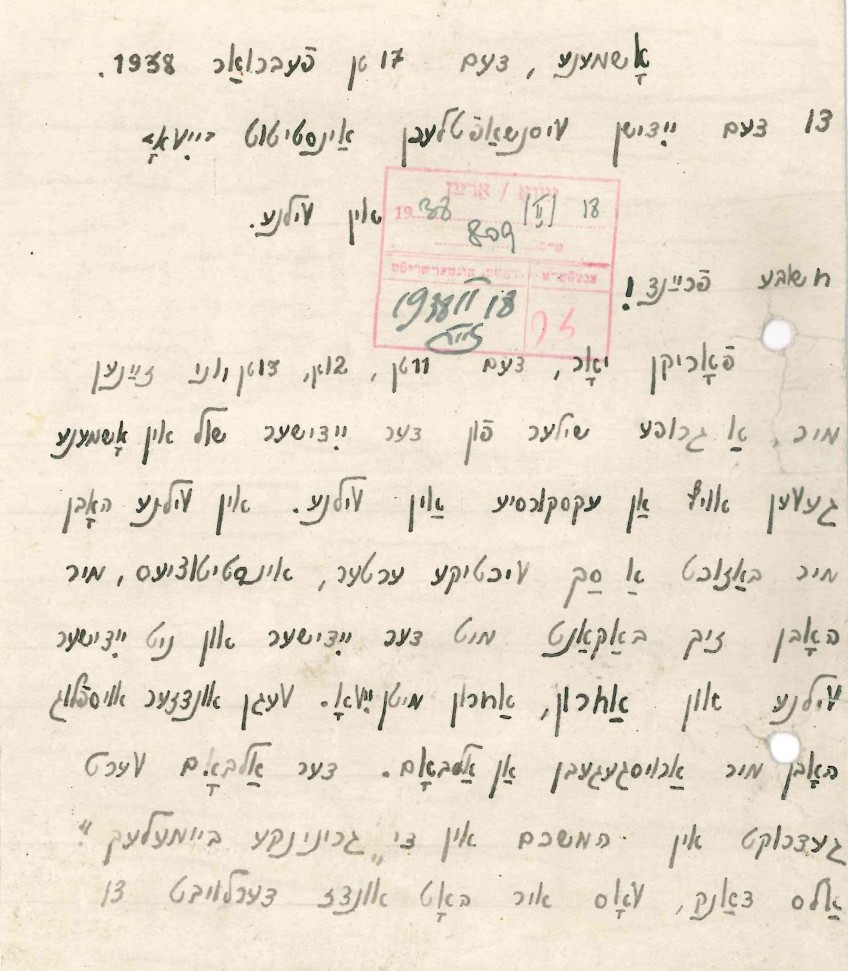 אָשמענע, דעם 17טן פֿעברואַר 1938.
צו דעם ייִדישן װיסנשאַפֿטלעכן אינסטיטוט ביים ייִװאָ
אין װילנע.
ייװאָ / ארײַן
18 / II / 1938
809
18 II 1938
חשובֿע פֿרײַנד!
פֿאָריקן יאָר, דעם 11טן, 12טן, 13טן יוני זײַנען
מיר, אַ גרופּע שילער פֿון דער ייִדישער שול אין אָשמענע
געװען אױף אַן עקסקורסיע אין װילנע. אין װילנע האָבן
מיר באַזוכט אַ סך װיכטיקע ערטער, אינסטיטוציעס, מיר
האָבן זיך באַקאַנט מיט דער ייִדישער און ניט ייִדישער
װילנע און אַחרון, אַחרון מיטן ייִװאָ. װעגן אונדזער אױספֿלוג
האָבן מיר אַרױסגעגעבן אַן אַלבאָם. דער אַלבאָם װערט
געדרוקט אין המשכים אין די „גרינינקע ביימעלעך".
אַלס דאַנק, װאָס איר האָט אונדז דערלױבט צו